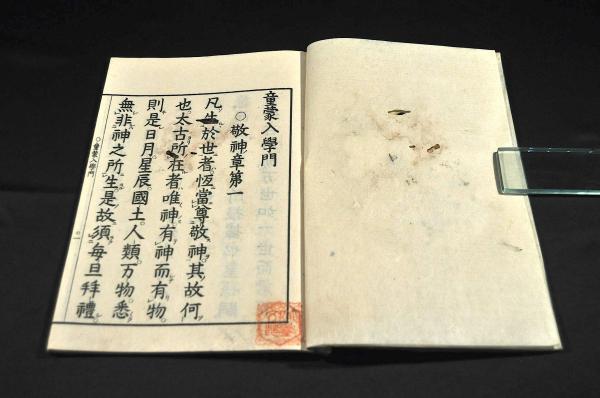 童蒙入學門
○敬神章第一
凡生於世者恆當尊敬神其故何
也太古所在者唯神有神而有物
則是日月星辰國土人類万物悉
無非神之所生是故須每旦拜禮
童蒙入學門